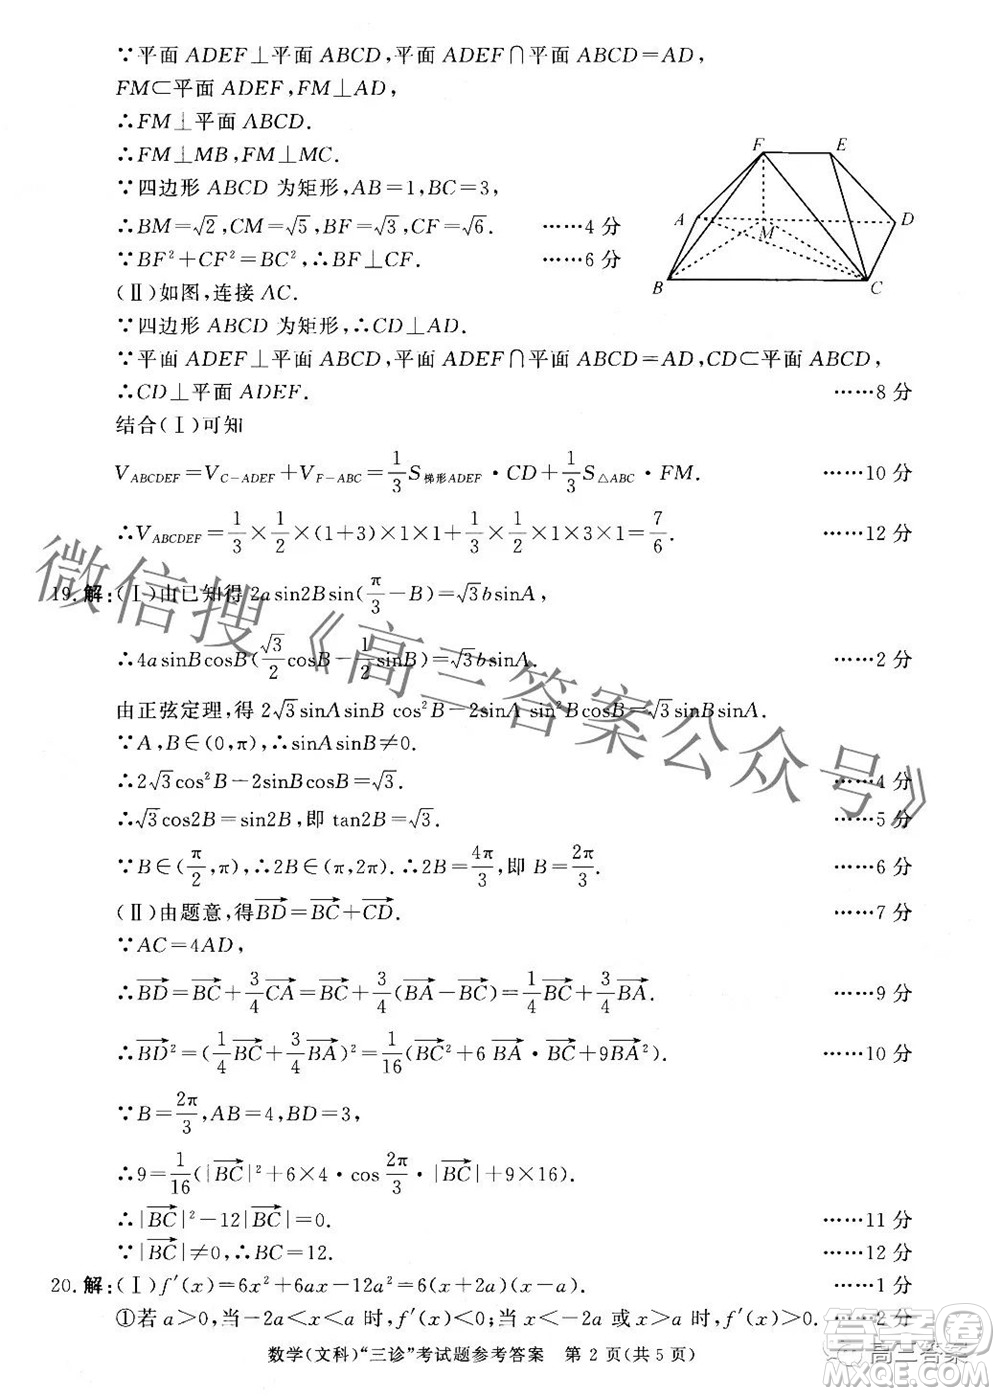 ∵平面 ADEF⊥平面 ABCD,平面 ADEF∩平面 ABCD=AD,
FM⊂平面 ADEF,FM⊥AD,
∴FM⊥平面 ABCD.
∴FM⊥MB,FM⊥MC.
∵四边形 ABCD 为矩形,AB=1,BC=3,
∴BM=√2,CM=√5,BF=√3,CF=√6. ……4 分
∵BF²+CF²=BC²,∴BF⊥CF. ……6 分
F E
A M D
B C
(Ⅱ)如图,连接 AC.
∵四边形 ABCD 为矩形,∴CD⊥AD.
∵平面 ADEF⊥平面 ABCD,平面 ADEF∩平面 ABCD=AD,CD⊂平面 ABCD,
∴CD⊥平面 ADEF. ……8 分
结合(Ⅰ)可知
V_ABCDEF=V_C-ADEF+V_F-ABC=1/3 S_梯形ADEF·CD+1/3 S_△ABC·FM. ……10 分
∴V_ABCDEF=1/3×1/2×(1+3)×1×1+1/3×1/2×1×3×1=7/6. ……12 分
19.解:(Ⅰ)由已知得 2asin2Bsin(π/3-B)=√3bsinA,
∴4asinBcosB(√3/2cosB-1/2sinB)=√3bsinA. ……2 分
由正弦定理,得 2√3sinAsinB cos²B-2sinA sin²BcosB=√3sinBsinA.
∵A,B∈(0,π),∴sinAsinB≠0.
∴2√3cos²B-2sinBcosB=√3. ……4 分
∴√3cos2B=sin2B,即 tan2B=√3. ……5 分
∵B∈(π/2,π),∴2B∈(π,2π).∴2B=4π/3,即 B=2π/3. ……6 分
(Ⅱ)由题意,得BD→=BC→+CD→. ……7 分
∵AC=4AD,
∴BD→=BC→+3/4CA→=BC→+3/4(BA→-BC→)=1/4BC→+3/4BA→. ……9 分
∴BD→²=(1/4BC→+3/4BA→)²=1/16(BC→²+6 BA→·BC→+9BA→²). ……10 分
∵B=2π/3,AB=4,BD=3,
∴9=1/16(|BC→|²+6×4·cos2π/3·|BC→|+9×16).
∴|BC→|²-12|BC→|=0. ……11 分
∵|BC→|≠0,∴BC=12. ……12 分
20.解:(Ⅰ)f′(x)=6x²+6ax-12a²=6(x+2a)(x-a). ……1 分
①若 a>0,当-2a<x<a 时,f′(x)<0;当 x<-2a 或 x>a 时,f′(x)>0. ……2 分
数学(文科)“三诊”考试题参考答案 第 2 页(共 5 页)
微信搜《高三答案公众号》
答案圈
高三答案